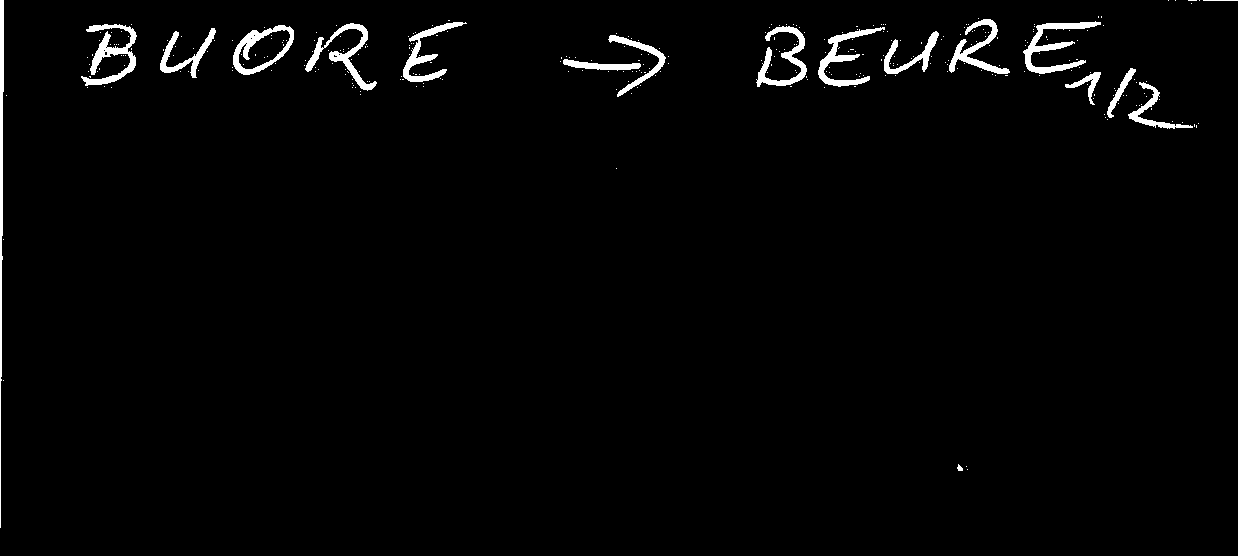 BUORE → BEURE1/2